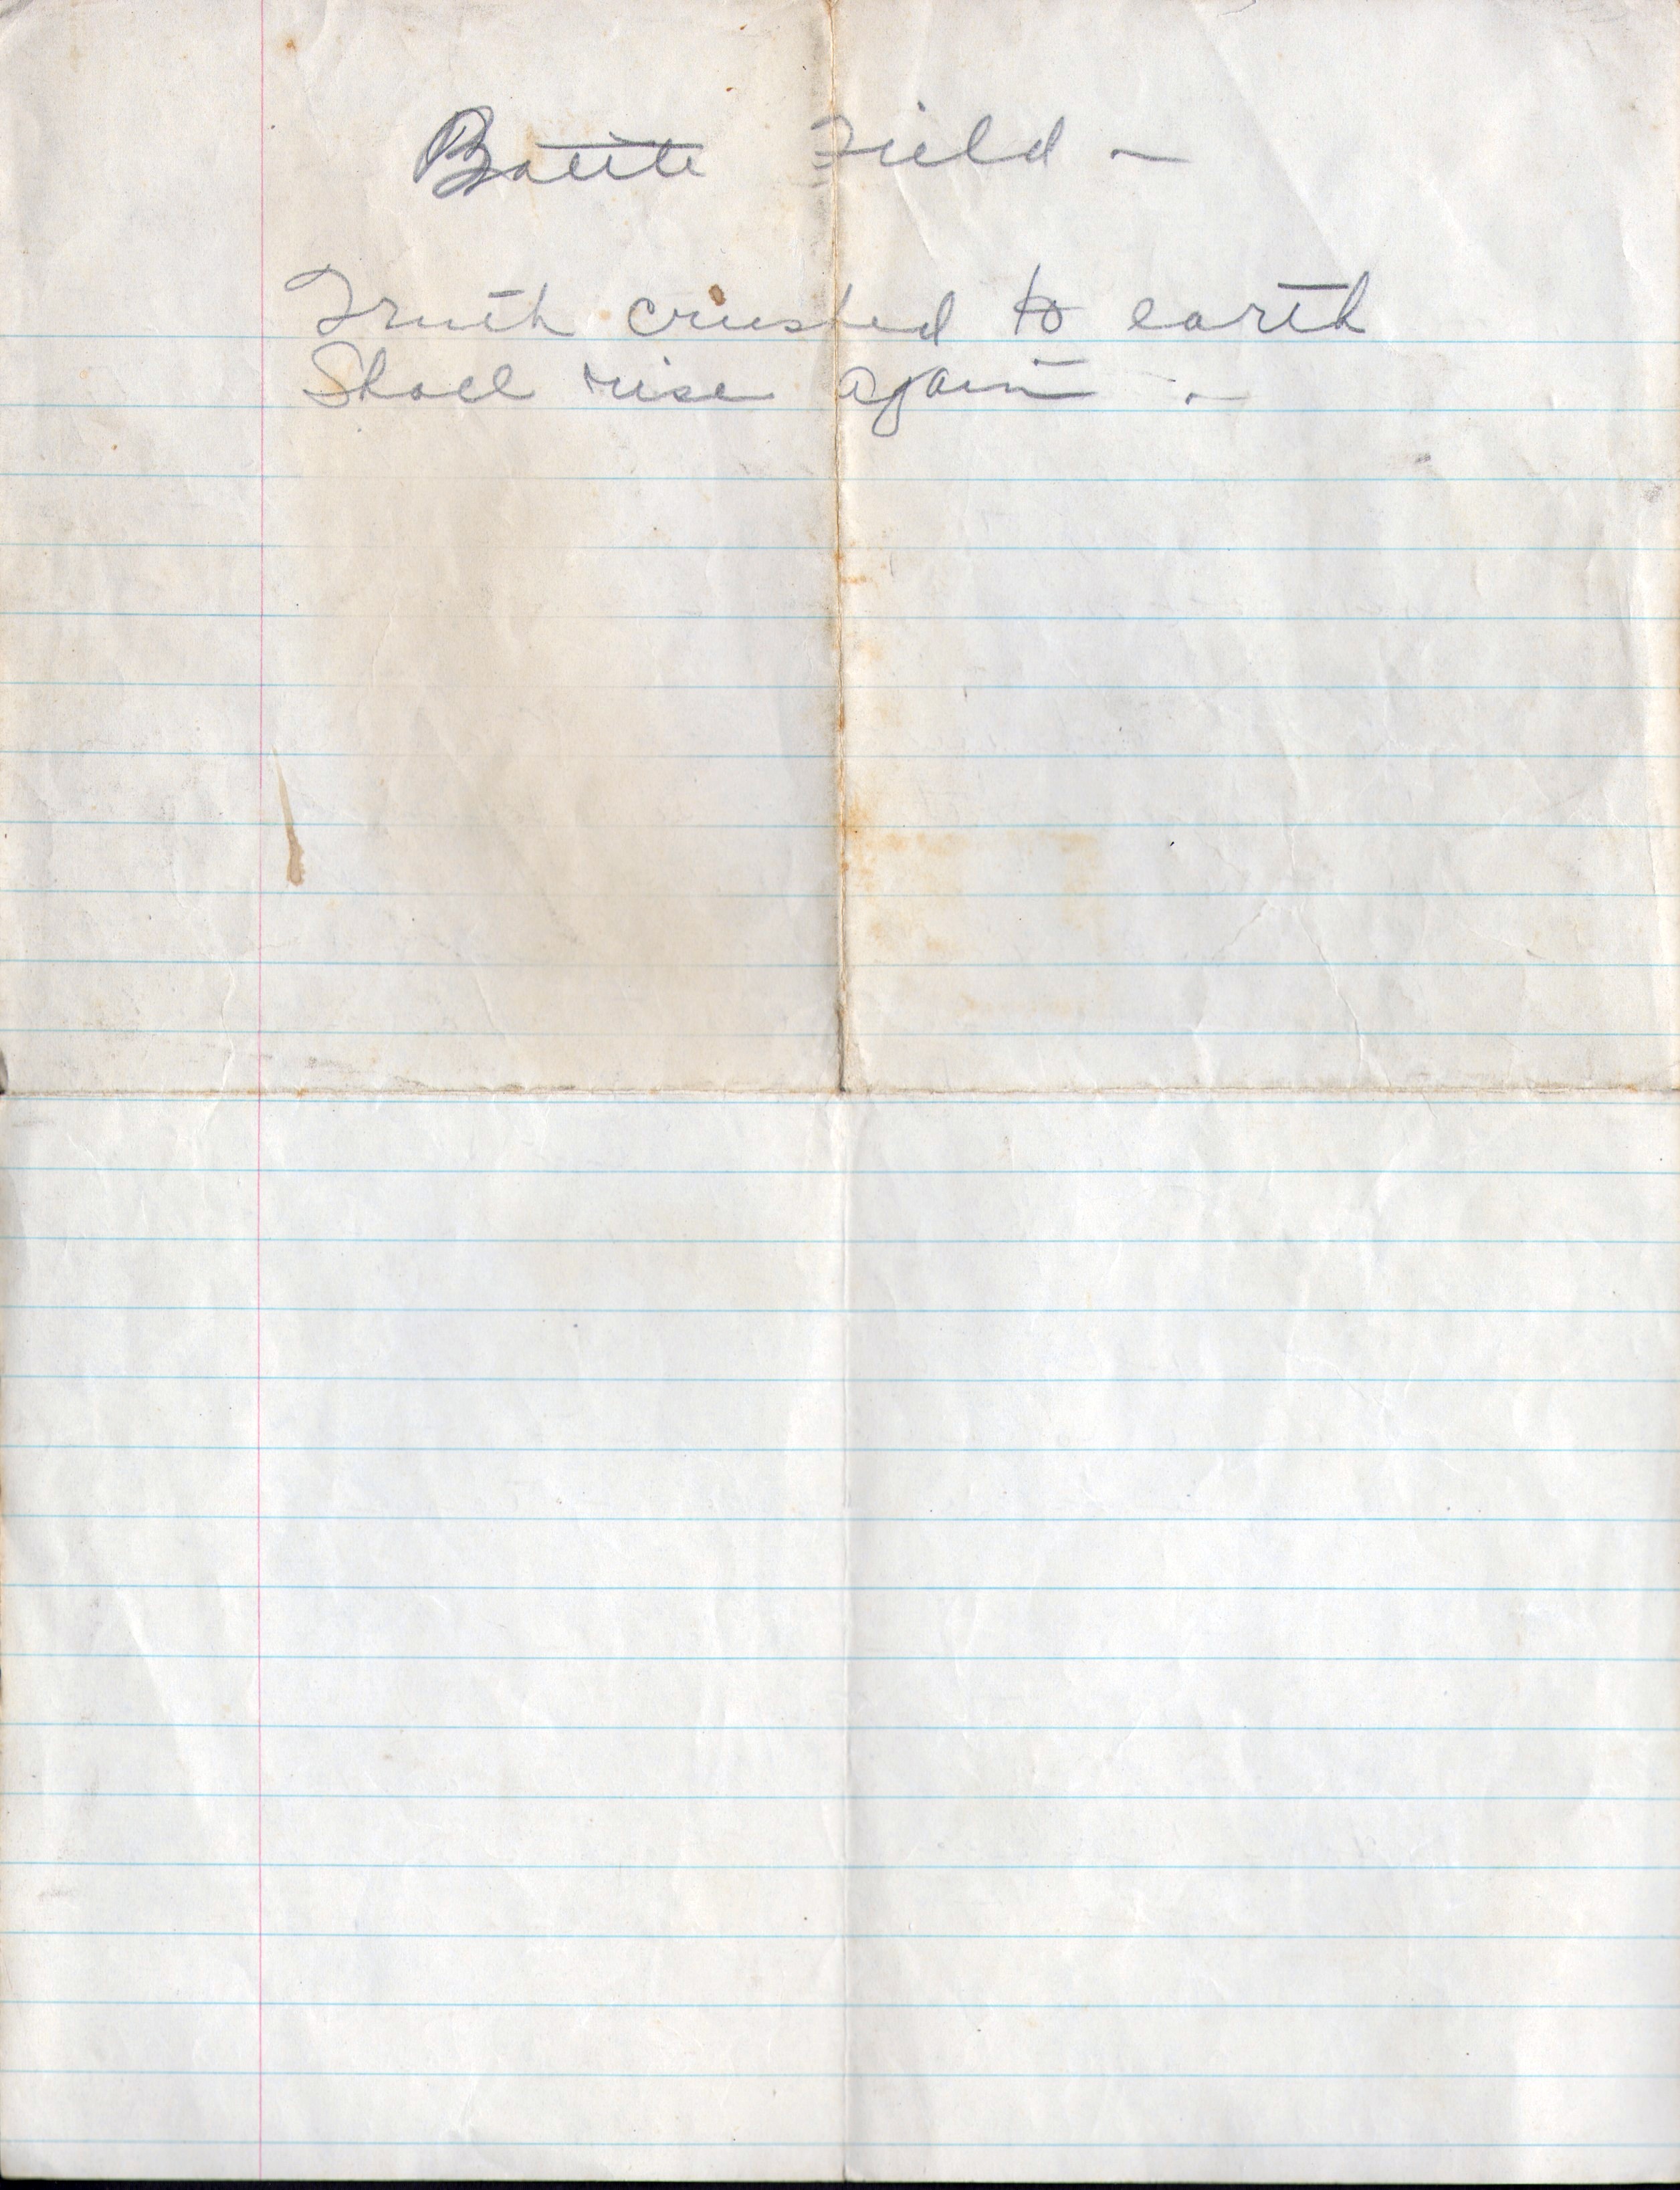 Battle Field -
Truth crushed to earth
Shall rise again.-